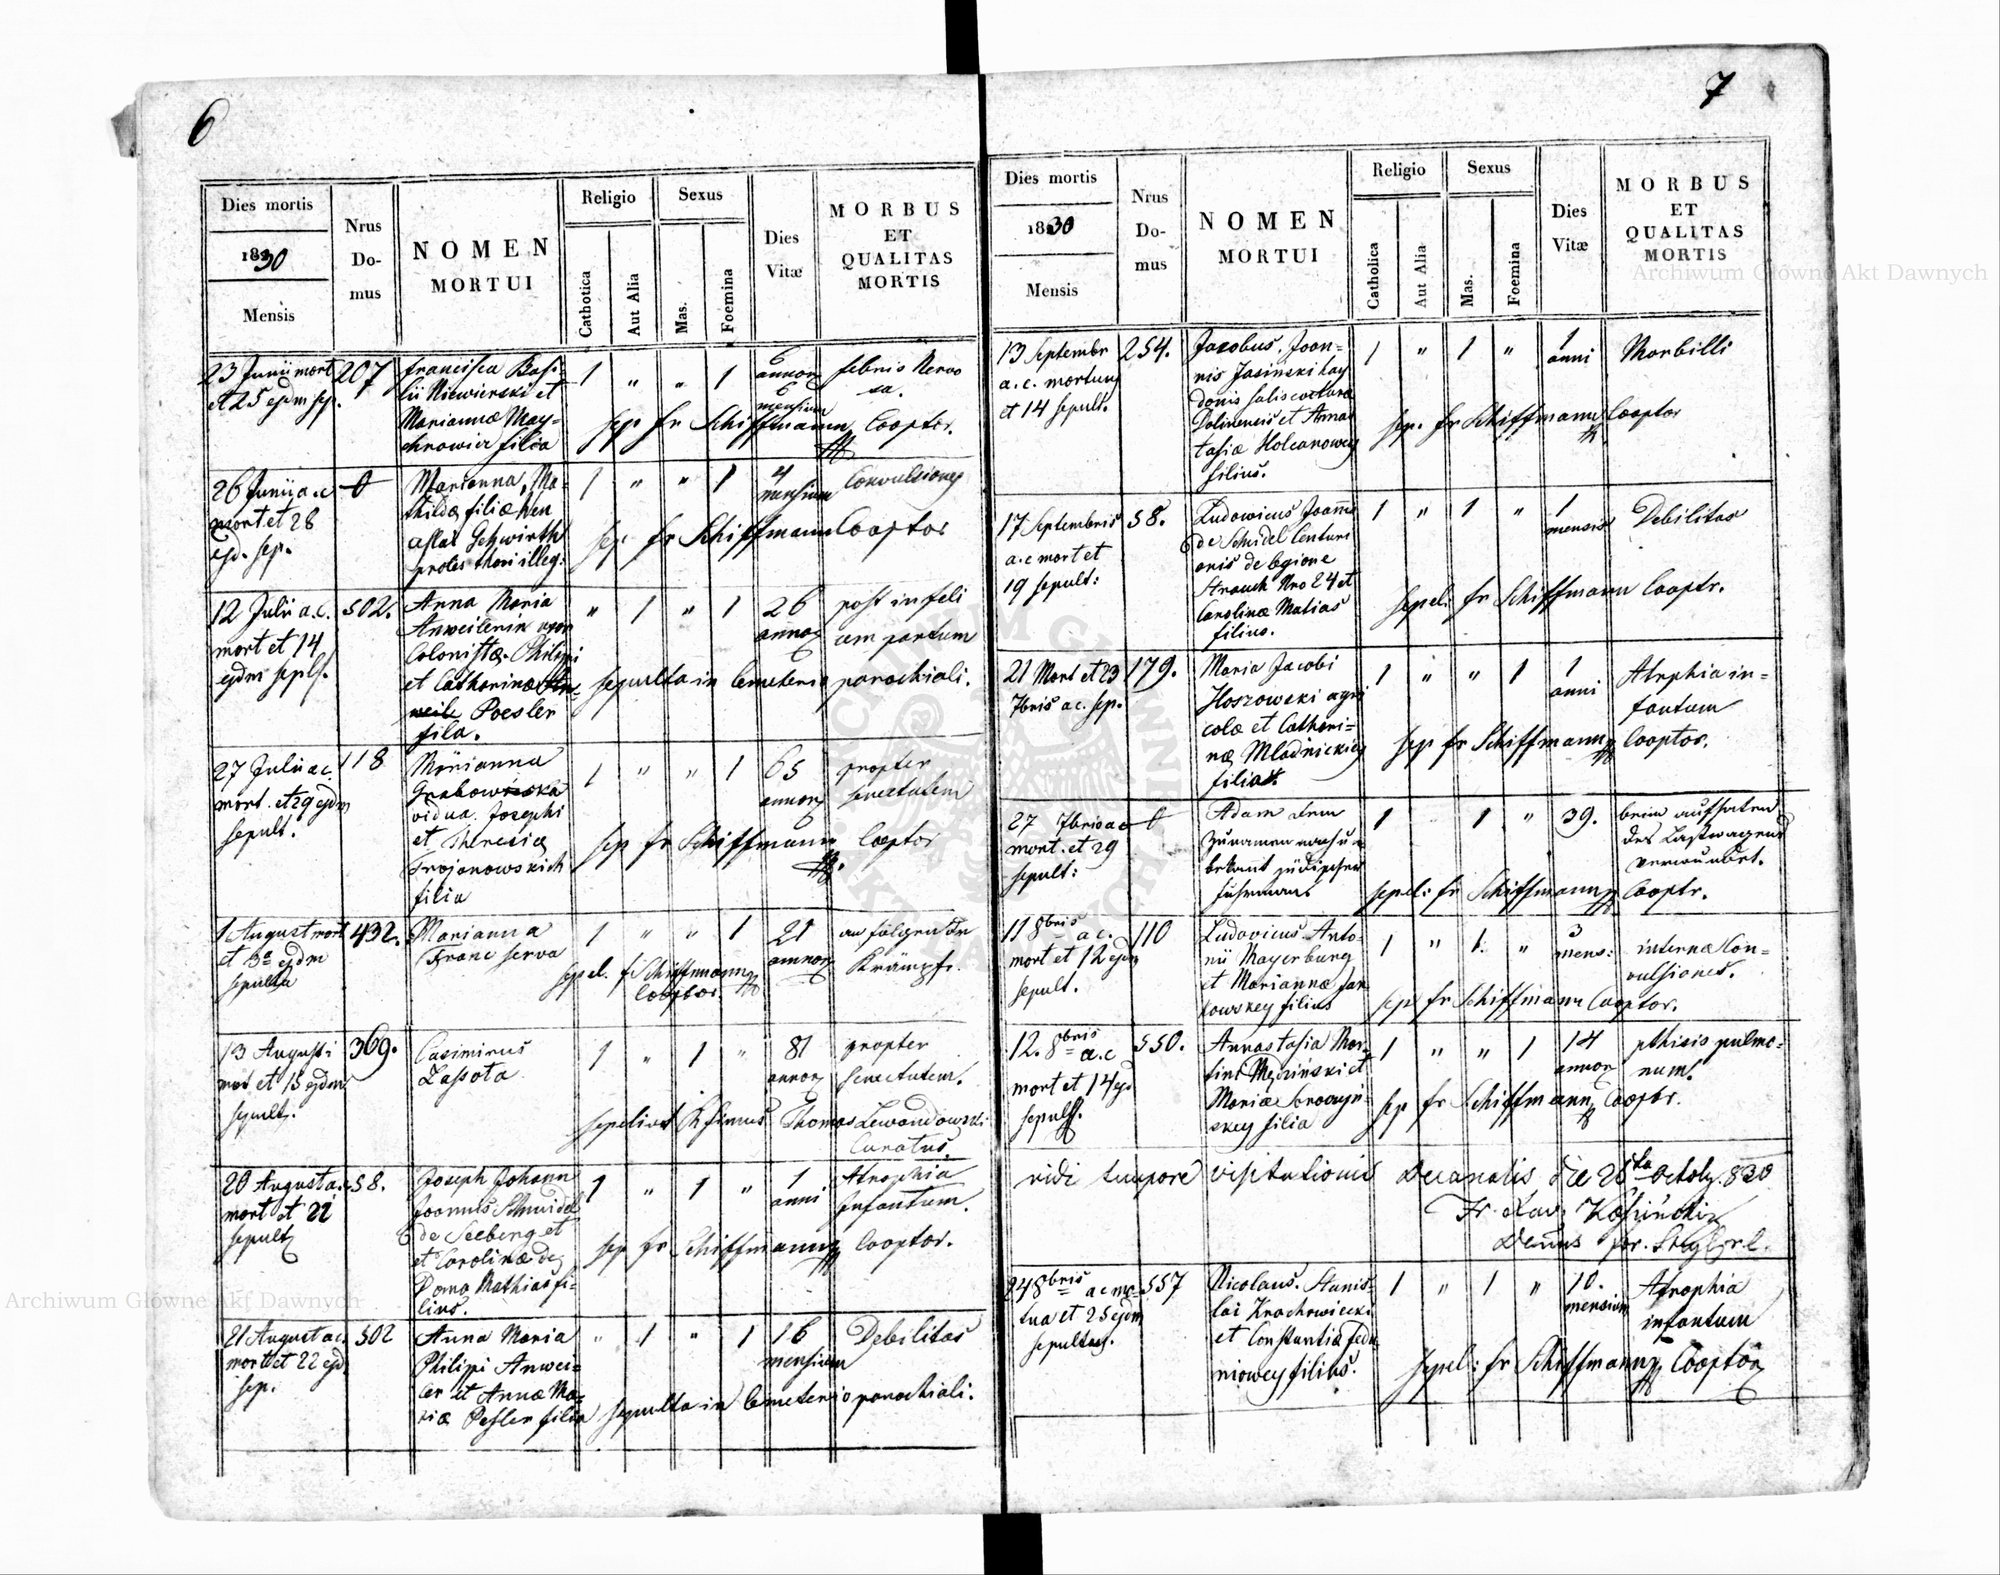 6
Dies mortis
1830
Mensis
Nrus
Do-
mus
NOMEN
MORTUI
Religio
Catholica
Aut Alia
Sexus
Mas.
Foemina
Dies
Vitæ
MORBUS
ET
QUALITAS
MORTIS
23 Junii mort
et 25 ejdm sep.
207
Francisca Basi-
lii Niewierski et
Mariannæ May-
chrowicz filia
1 " " 1
6
annor
6
mensium
febris Nervo
sa.
sep fr Schiffmann Cooptr.
26 Junii a.c
mort et 28
ejd. sep.
0
Marianna, Ma-
thildæ filiæ
Gehwirth
proles thori illeg:
1 " " 1
4
mensium
Convulsiones
sep fr Schiffmann Cooptor
12 Julii a.c.
mort et 14
ejdm seplt.
502.
Anna Maria
Anweilerin uxor
Colonistæ Philippi
et Catharinæ
Poesler
filia.
" 1 " 1
26
annor
post infeli
cem partum
sepulta in Cemeterio parochiali.
27 Julii a.c.
mort. et 29 ejdm
sepult.
118
Marianna
Grabowska
vidua Josephi
et Theresiæ
Trojanowskich
filia
1 " " 1
65
annor
propter
senectutem
sep fr Schiffmann Cooptor
1 August mort
et 3a ejdm
sepulta
432.
Marianna
Franc serva
1 " " 1
21
annor
an folgen der
Krämpfe.
sepel. fr Schiffmann
Cooptor.
13 Augusti
mort et 15 ejdm
sepult.
369.
Casimirus
Lassota
1 " 1 "
81
annor
propter
senectutem.
sepelivit Thomas Lewandowski
Curatus.
20 August a.c
mort et 22
sepult
58.
Joseph Johann
Joannis Schmidel
de Seeberg et
et Carolinæ de
Domo Mathias fi-
lius.
1 " 1 "
1
anni
Atrophia
Infantum.
sep fr Schiffmann Cooptor.
21 August ac.
mort et 22 ejd
sep.
502
Anna Maria
Philippi Anwei-
ler et Annæ Ma-
riæ Pesler filia
" 1 " 1
16
mensium
Debilitas
sepulta in Cemeterio parochiali.
7
Dies mortis
1830
Mensis
Nrus
Do-
mus
NOMEN
MORTUI
Religio
Catholica
Aut Alia
Sexus
Mas.
Foemina
Dies
Vitæ
MORBUS
ET
QUALITAS
MORTIS
13 Septembr
a.c. mortuus
et 14 sepult.
254.
Jacobus, Joan-
nis Jasinski hay
donis salis coctura
Dolinensis et Anas
tasiæ Holcanowey
filius.
1 " 1 "
1
anni
Morbilli
sep. fr Schiffmann Cooptor
17 Septembris
a.c mort et
19 sepult:
58.
Ludowicus Joannis
de Schidel Centuri
onis de legione
Strauch Nro 24 et
Carolinæ Matias
filius.
1 " 1 "
1
mensis
Debilitas
sepel: fr Schiffmann Cooptr.
21 Mort et 23
7bris ac. sep.
179.
Maria Jacobi
Hoszowski agri
colæ et Cathari-
næ Mladnickiey
filia
1 " " 1
1
anni
Atrphia in-
fantum
sep fr Schiffmann Cooptor.
27 7bris ac
mort. et 29
sepult:
0
Adam dem
Zunamen nach un
bekant jüdischer
fuhrmans
1 1 "
39.
beim
des Lastwagens
verwundet.
sepel: fr Schiffmann Cooptr.
11 8bris a c.
mort et 12 ejdm
sepult.
110
Ludovicus Anto-
nii Mayerburg
et Mariannæ Jan
kowskey filius
1 " 1. "
3
mens:
internæ Con-
vulsiones.
sep fr Schiffmann Cooptor.
12. 8bris a.c
mort et 14 ejd
sepult.
550.
Annastasia Mar-
tini et
Mariæ
skey filia
1 " " 1
14
annor
pthisis pulmo-
num.
sep fr Schiffmann Cooptr.
vidi tempore visitationis Decanalis die 26ta Octob. 830
Fr. Xav.
8bris a c mor-
tua et 25 ejdm
sepultus.
557
Nicolaus. Stanis-
lai Krachowiecki
et Constantiæ Fedu
niowey filius.
1 " 1 "
10.
mensium
Atrophia
infantum
sepel: fr Schiffmann Cooptor
Archiwum Główne Akt Dawnych
Archiwum Główne Akt Dawnych